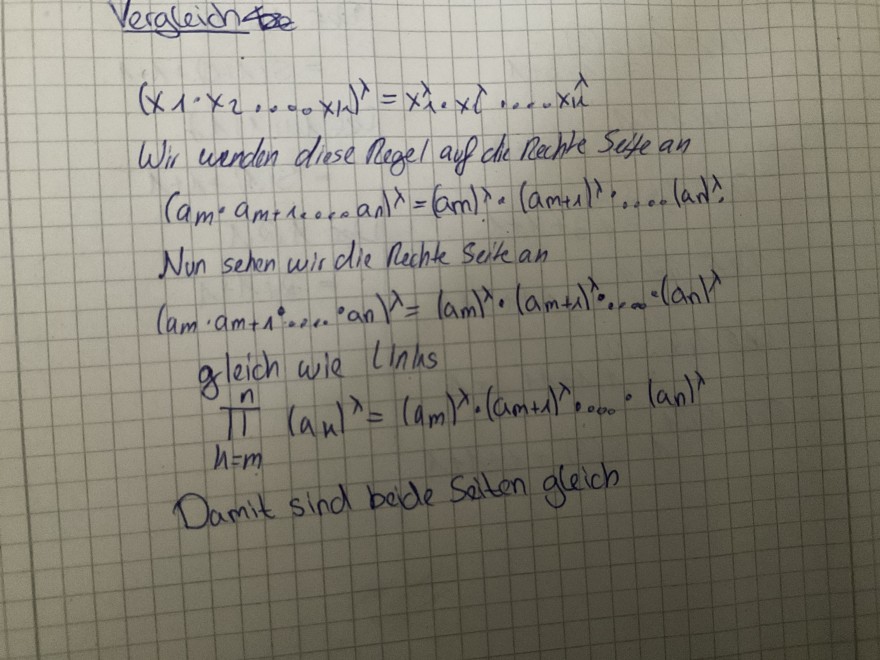 Vergleich
(x1·x2.....xn)^λ = x1^λ·x2^λ.....xn^λ
Wir wenden diese Regel auf die Rechte Seite an
(am·am+1.....an)^λ = (am)^λ·(am+1)^λ·.....(an)^λ.
Nun sehen wir die Rechte Seite an
(am·am+1·....·an)^λ = (am)^λ·(am+1)^λ·....·(an)^λ
gleich wie Links
n
∏ (ak)^λ = (am)^λ·(am+1)^λ·....·(an)^λ
k=m
Damit sind beide Seiten gleich